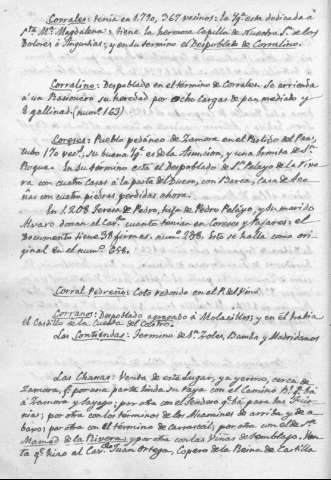 Corrales: tenía en 1.790, 367 vecinos: la Ygª esta dedicada á
Stª Mª Magdalena: tiene la hermosa Capilla de Nuestra Sª de los
Dolores ó Angustias; y en su termino el Despoblado de Corralino.
Corralino: Despoblado en el término de Corrales. Se arrienda
á un Racionero su heredad por ocho cargas de pan mediado y
8 gallinas (numº 163)
Coreses: Pueblo pedáneo de Zamora en el Partido del Pan,
tubo 170 vecs. Su buena Ygª es de la Asuncion, y una hermita de Sn
Roque. En su término está el Despoblado de Sn Pelayo de la Rive
ra con cuatro Casas á la parte del Duero, con Barca, Casa de Ace
ñas con cuatro piedras perdidas ahora.
En 1.208 Teresa de Pedro, hija de Pedro Peláyo, y su marido
Alvaro donan al Cavº cuanto tenian en Coreses y Pajares: el
Documento tiene 38 firmas. numº 288. Este se halla como ori
ginal en el numº 858.
Corral Pedreño: Coto redondo en el P. del Vino
Corranos: Despoblado agregado á Molacillos; y en él había
el Castillo de la Cuesta del Castro.
Las Contiendas: Termino de Sn Zoles, Bamba y Madridanos
Las Chanas: Venta de este Lugar, ya yermo, cerca de
Zamora, qe por una parte linda su raya con el Camino Rl qe bá
á Zamora y Sayago; por otra con el Sendero qe bá para las
nias; por otra con los términos de los Meamines de arriba y de a
bajo; por otra con el término de Carrascal; por otra con el de Sn
Mamed de la Rivera; y por otra con las Viñas de
ta qe hizo al Cavº Juan Ortega, Copero de la Reina de Castilla